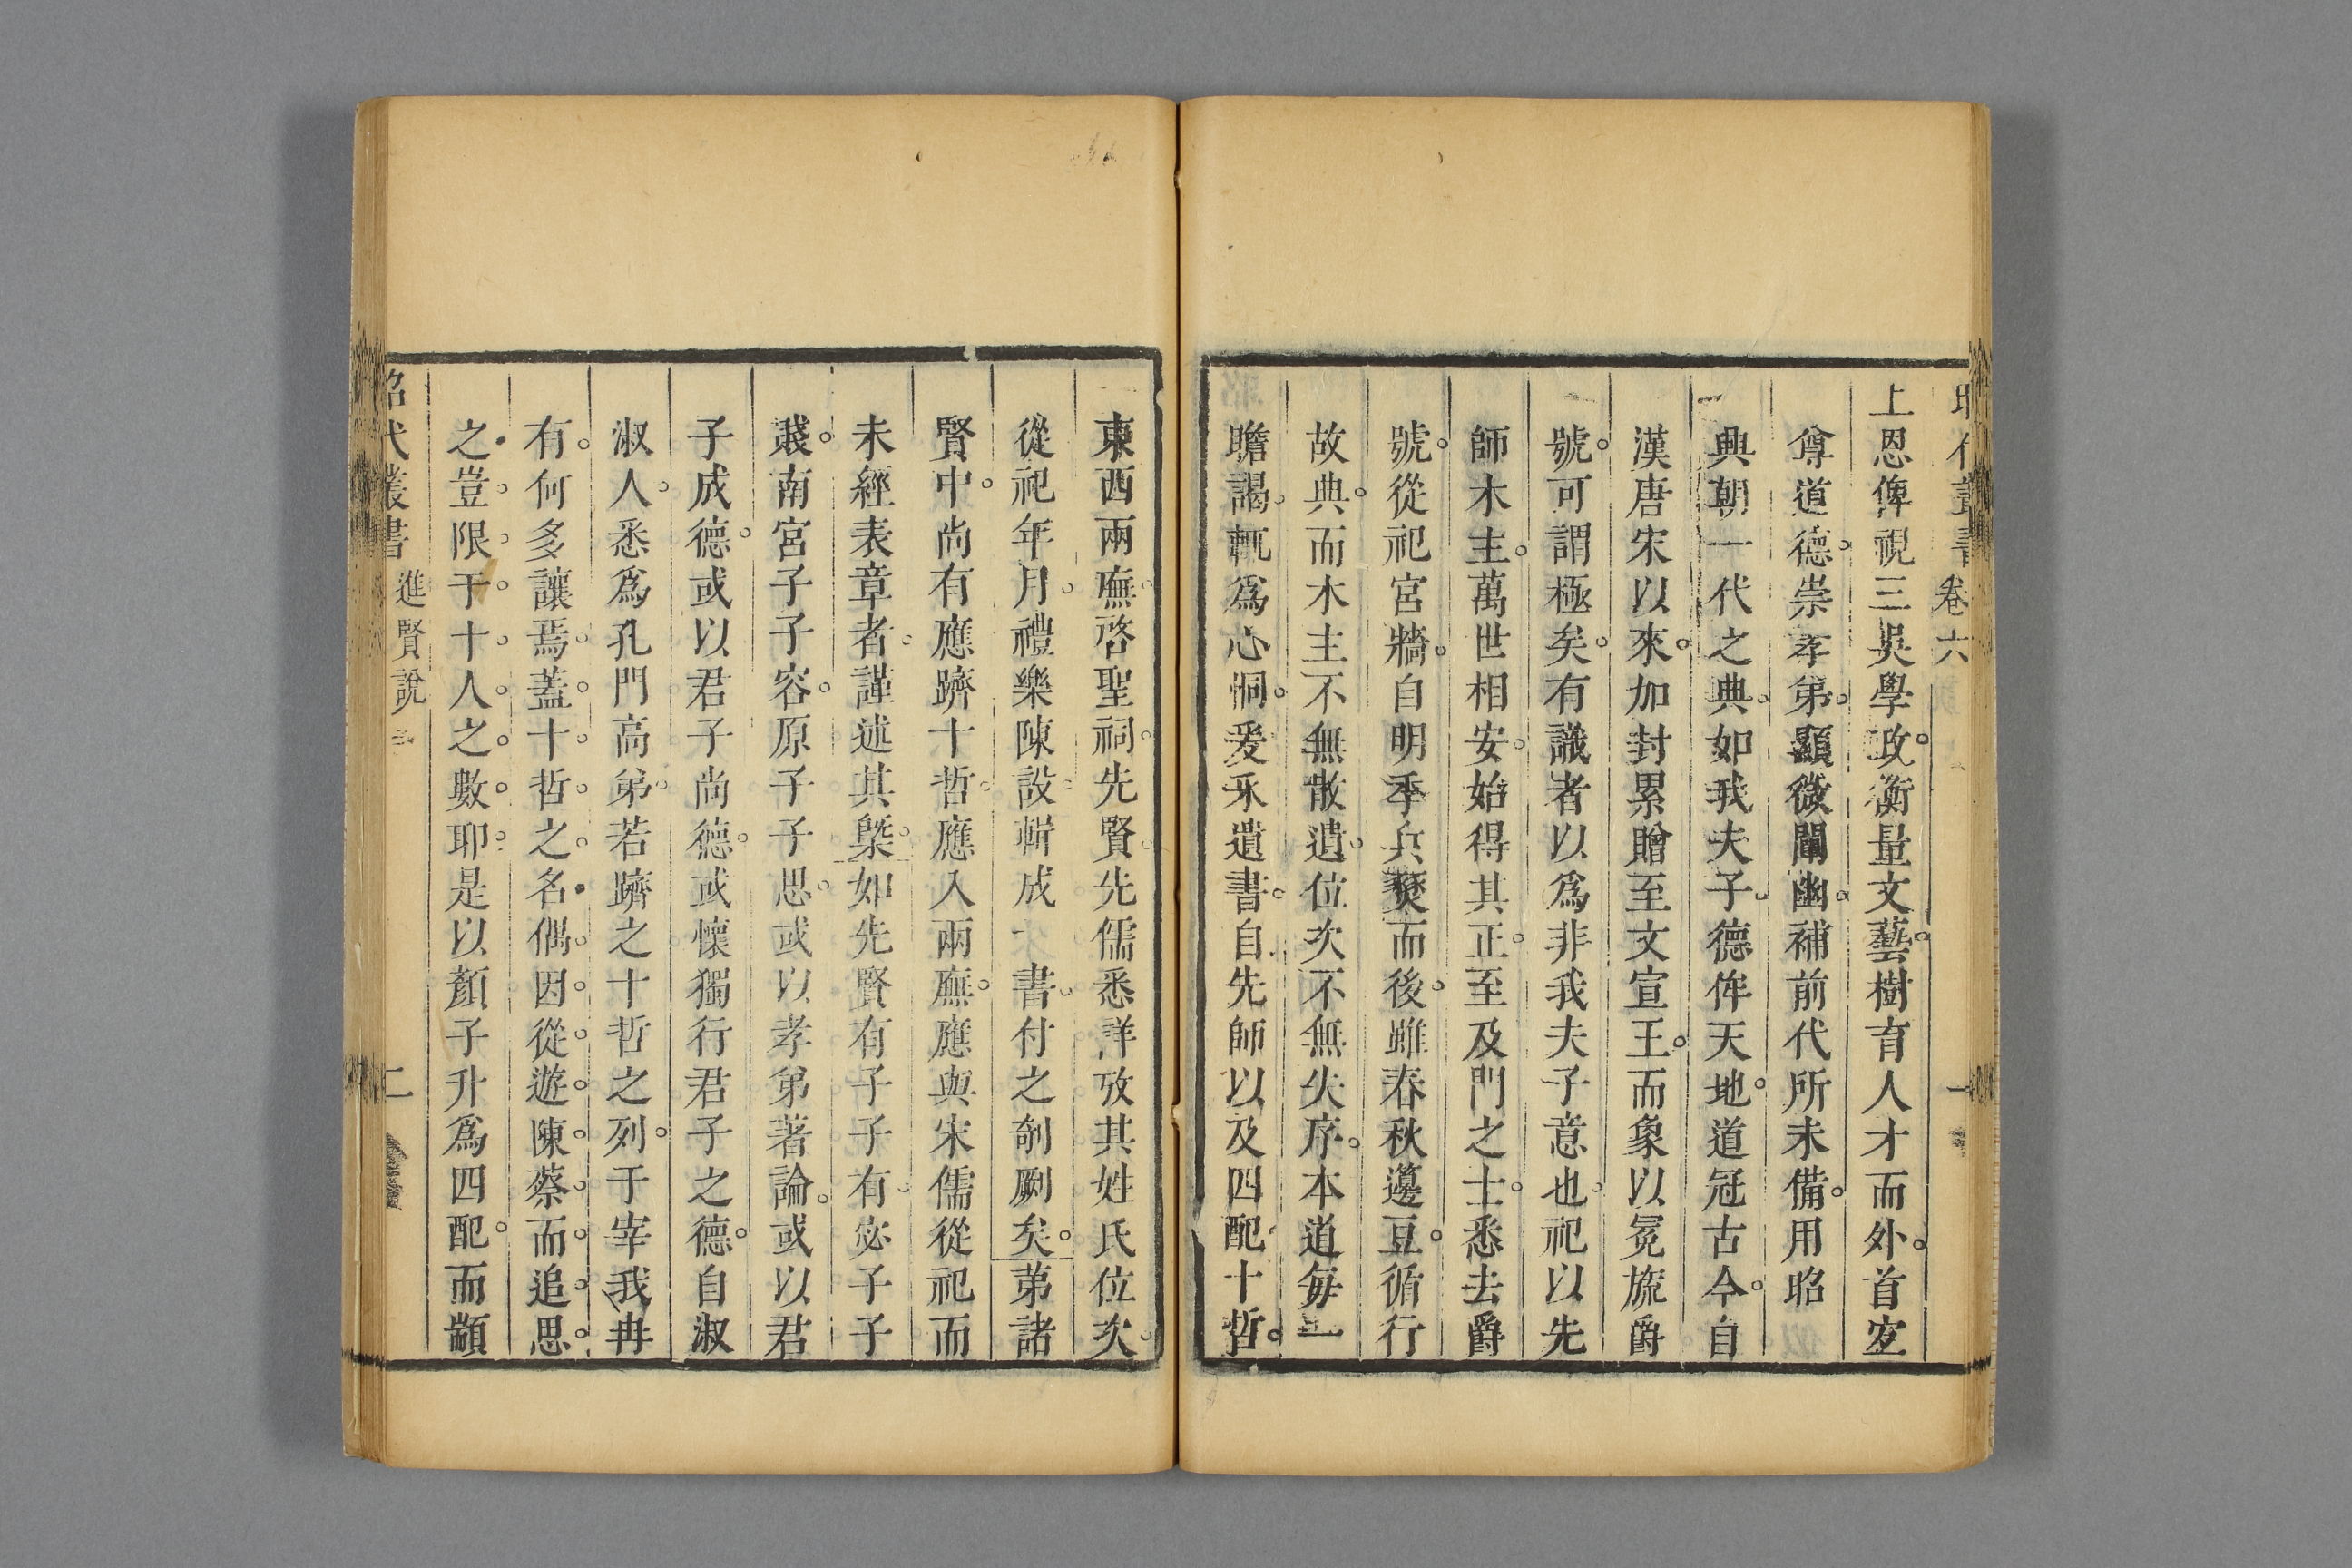 昭代叢書 卷六 一
上恩俾視三吳學政。衡量文藝。樹育人才而外。首宜
尊道德。崇孝弟。顯微闡幽。補前代所未備。用昭
興朝一代之典。如我夫子。德侔天地。道冠古今。自
漢唐宋以來。加封累贈至文宣王。而象以冕旒爵
號。可謂極矣。有識者以爲非我夫子意也。祀以先
師木主。萬世相安。始得其正。至及門之士。悉去爵
號。從祀宮牆。自明季兵燹而後。雖春秋籩豆。循行
故典。而木主不無散遺。位次不無失序。本道每一
瞻謁。輒爲心恫。爰采遺書。自先師以及四配十哲。
東西兩廡。啓聖祠。先賢。先儒悉詳攷其姓氏位次。
從祀年月。禮樂陳設。斬成一書。付之剞劂矣。第諸
賢中。尚有應躋十哲。應入兩廡。應與宋儒從祀而
未經表章者。謹述其槩。如先賢有子子有。宓子子
賤。南宮子子容。原子子思。或以孝弟著論。或以君
子成德。或以君子尚德。或懷獨行君子之德。自淑
淑人。悉爲孔門高弟。若躋之十哲之列。于宰我冉
有。何多讓焉。蓋十哲之名。偶因從遊陳蔡。而追思
之。豈限于十人之數耶。是以顏子升爲四配。而顓
昭代叢書 進賢說 二